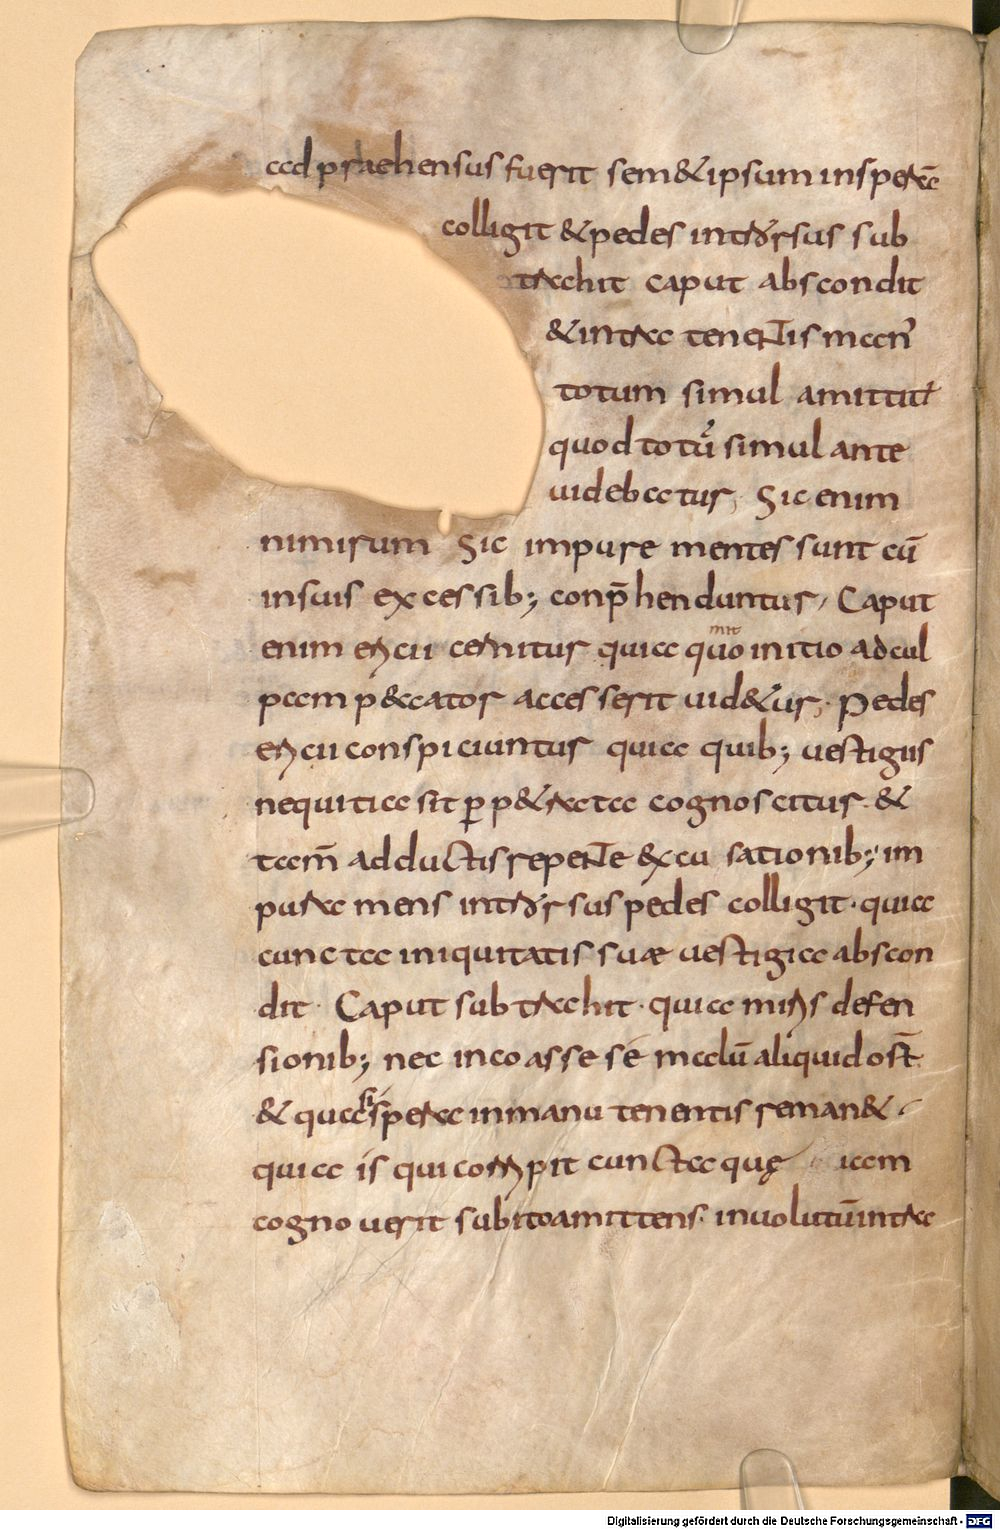 adpraehensus fuerit sem&ipsum inspera
colligit &pedes introrsus sub
trachit caput abscondit
&intra tenentis man'
totum simul amittit
quod totū simul ante
uidebatur, Sic enim
nimirum Sic impure mentes sunt cū
insuis excessib; conp̄henduntur, Caput
enim ericii cernitur quia quo initio adcul
mit
pam p&cator accesserit uid&ur; Pedes
ericii conspiciuntur quia quib; uestigiis
nequitiae sit ꝑp&rata cognoscitur · &
tam̄ adductis repente &cu sationib; im
pura mens introrsus pedes colligit · quia
cuncta iniquitatis suæ uestigia abscon
dit · Caput subtrachit · quia miris defen
sionib; nec incoasse sé malū aliquid ost̄
& quasi spera inmanu tenentis reman&
quia is qui corripit cuncta quę iam
cognouerit subitoamittens · inuolutūintra
Digitalisierung gefördert durch die Deutsche Forschungsgemeinschaft - DFG